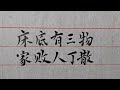 床底有三物
家败人丁散